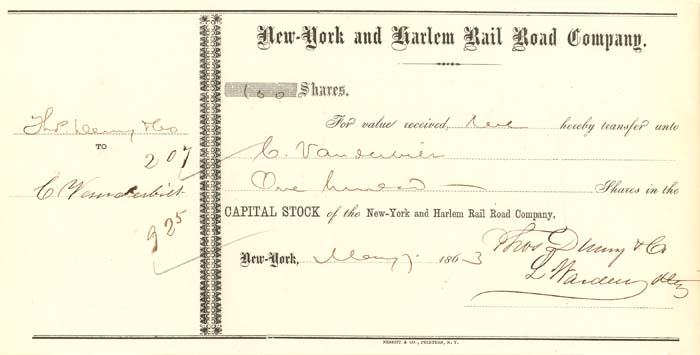 Thos Denny & Co
TO
207
C Vanderbilt
925
New-York and Harlem Rail Road Company.
100 Shares.
For value received, we hereby transfer unto
C. Vanderbilt
One hundred Shares in the
CAPITAL STOCK of the New-York and Harlem Rail Road Company.
New-York, May 7. 1863
Thos Denny & Co
L Warden Atty
NESBITT & CO., PRINTERS, N. Y.